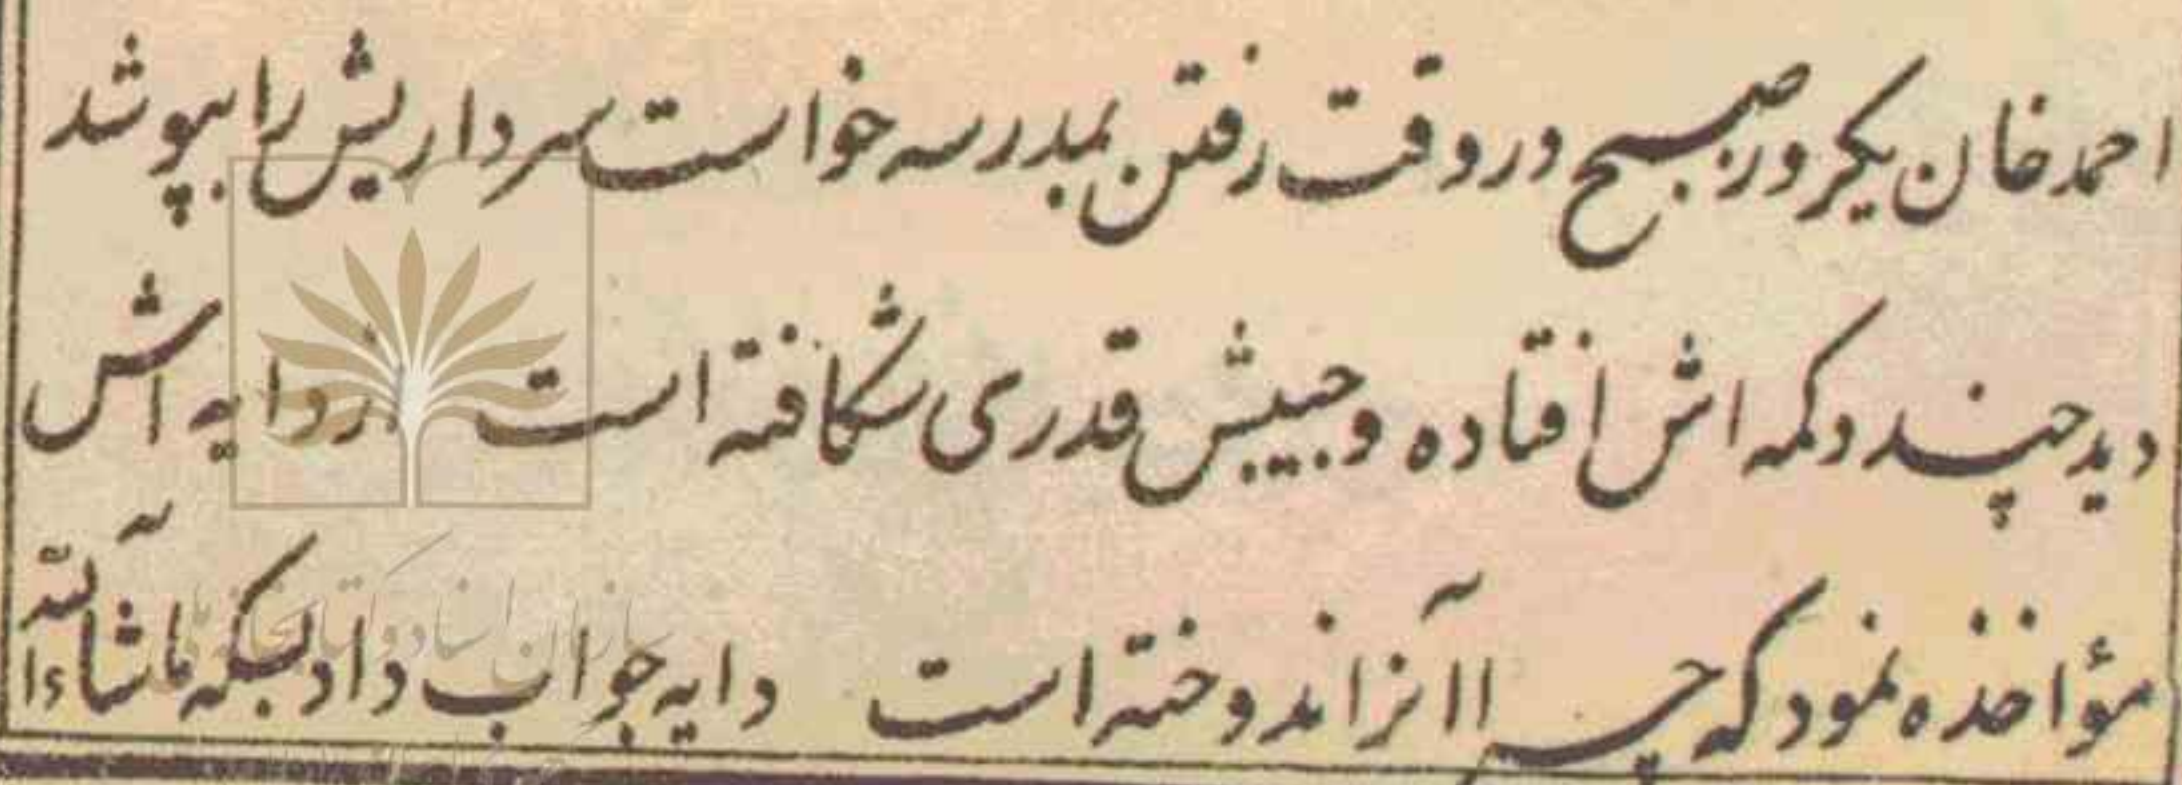 احمد خان یکروز صبح در وقت رفتن بمدرسه خواست سرداریش را بپوشد
دید چند دکمه اش افتاده و جیبش قدری شکافته است از دایه اش
مؤاخذه نمود که چرا آنرا ندوخته است دایه جواب داد بسکه ماشآءالله
سازمان اسناد و کتابخانه ملی